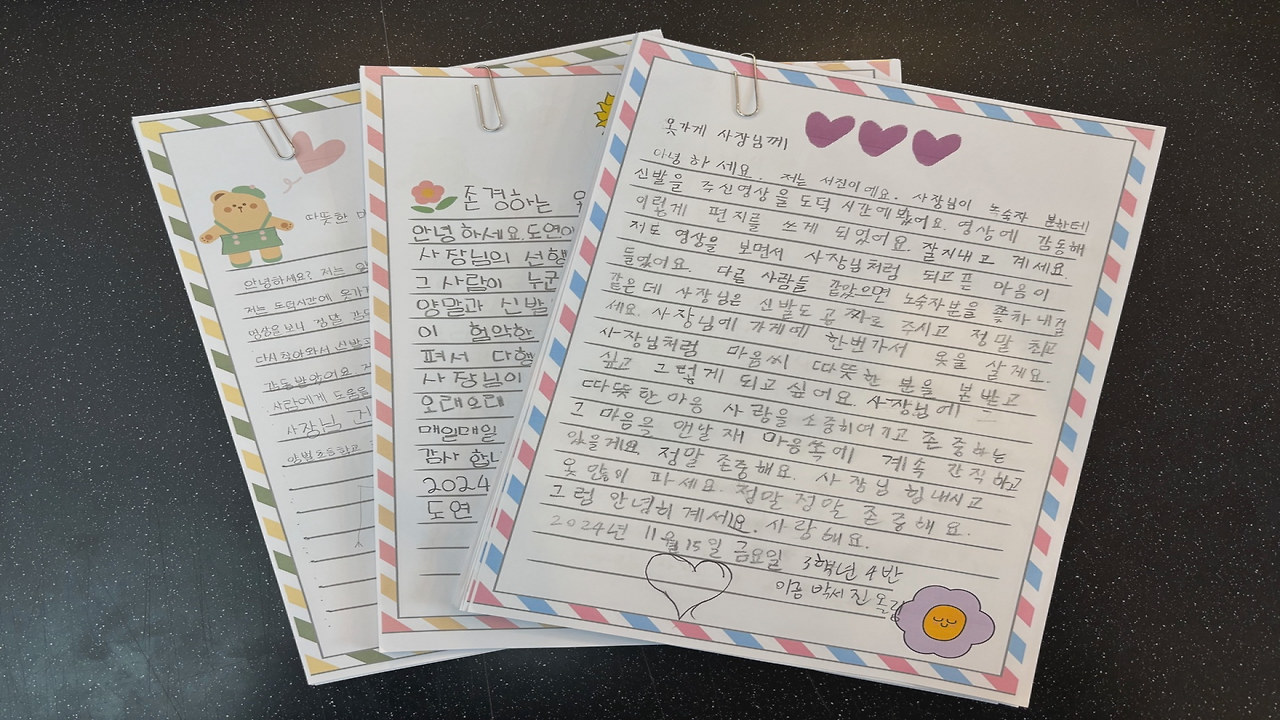 따뜻한
안녕하세요? 저는
저는 도덕시간에 옷가
영상을보니 정말 감도
다시찾아와서 신발과
감동받았어요.
사람에게 도움을
사장님 건
존경하는
안녕하세요.도연이
사장님의 선행
그 사람이 누군
양말과 신발
이 험악한
펴서 다행
사장님이
오래오래
매일매일
감사 합니
2024
도연
옷가게 사장님께
안녕하세요. 저는 서진이에요. 사장님이 녹숙자 분한테
신발을 주신영상을 도덕 시간에봤어요. 영상에 감동해
이렇게 편지를 쓰게 되었어요. 잘지내고 계세요.
저도 영상을 보면서 사장님처럼 되고픈 마음이
들었어요. 다른 사람들 같았으면 노숙자분을 쫓차내걸
같은데 사장님은 신발도 공짜로 주시고 정말 최고
세요. 사장님에 가게에 한번가서 옷을 살게요.
사장님처럼 마음씨 따뜻한 분을 본받고
싶고 그렇게 되고 싶어요. 사장님에
따뜻한마음 사랑을 소중히여기고 존중하는
그 마음을 맨날 재 마음쏙에 계속 간직하고
있을게요. 정말 존중해요. 사장님 힘내시고
옷 많이 파세요. 정말 정말 존중해요.
그럼 안녕히 계세요. 사랑해요.
2024년 11월15일 금요일 3학년 4반
이름 박서진 올림